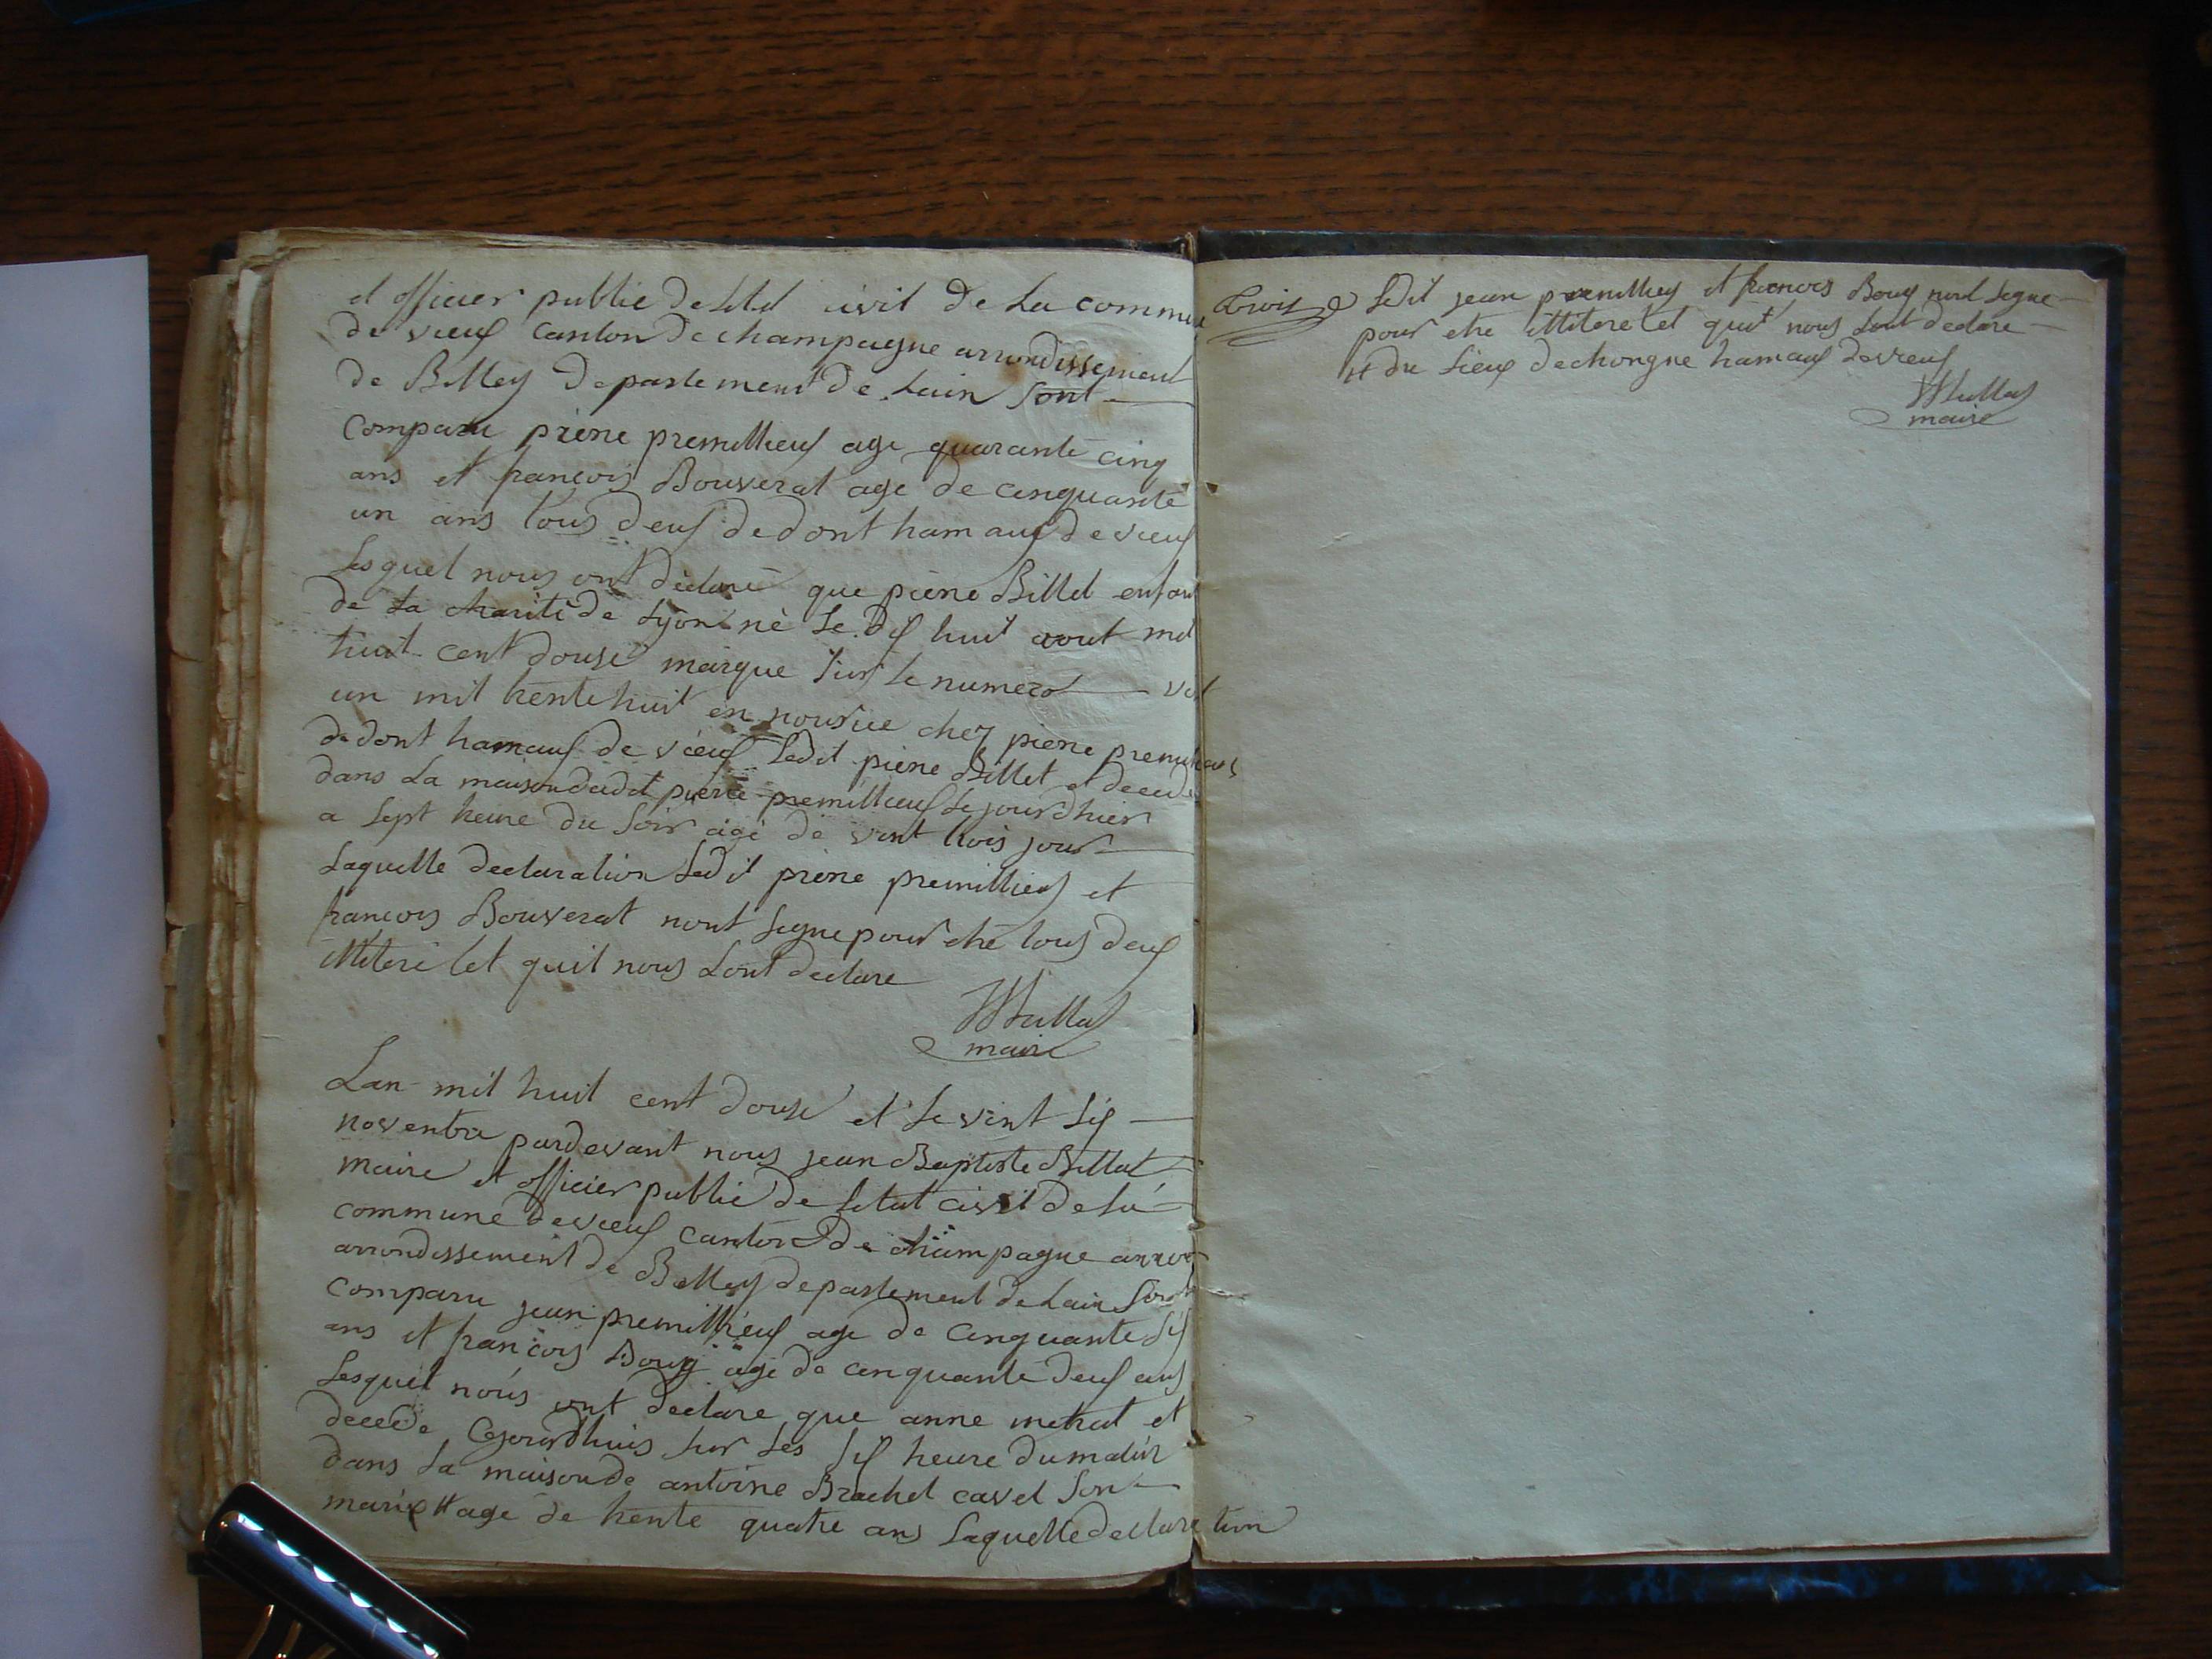 et officier public de letat civil de la commune
de vieuf canton de champagne arrondissement
de Belley departement de lain sont
comparu pierre premillieuf age quarante cinq
ans et francois Bouverat age de cinquante
un ans tous deuf de dont hamauf de vieuf
lesquel nous ont declaré que pierre Billet enfant
de la charité de Lyon né le dif huit aout mil
huit cent douse marque sur le numero
un mil trente huit en nourice chez pierre premillieuf
de dont hamauf de vieuf ledit pierre Billet et decede
dans la maison dudit pierre premillieuf le jourdhier
a sept heure du soir agé de vint trois jour
laquelle declaration ledit pierre premillieuf et
francois Bouverat nont segne pour etre tous deuf
illiteré let quil nous lont declare
maire
Lan mil huit cent douse et le vint sif
novenbre pardevant nous jean Baptiste Billat
maire et officier public de letat civil de la
commune de vieuf canton de champagne arron
arrondissement de Belley departement de lain sont
comparu jean premillieuf age de cinquante sif
ans et francois Bouy agé de cinquante deuf ans
lesquel nous ont declare que anne metrat et
decede cejourdhuis sur les sif heure du matin
dans la maison de antoine Brachet cavet son
marix # age de trente quatre ans laquelle declaration
ledit jean premillieuf et francois Bouy nont segne
pour etre illiteré let quil nous lont declare
# du lieuf dechongne hamauf de vieuf
maire